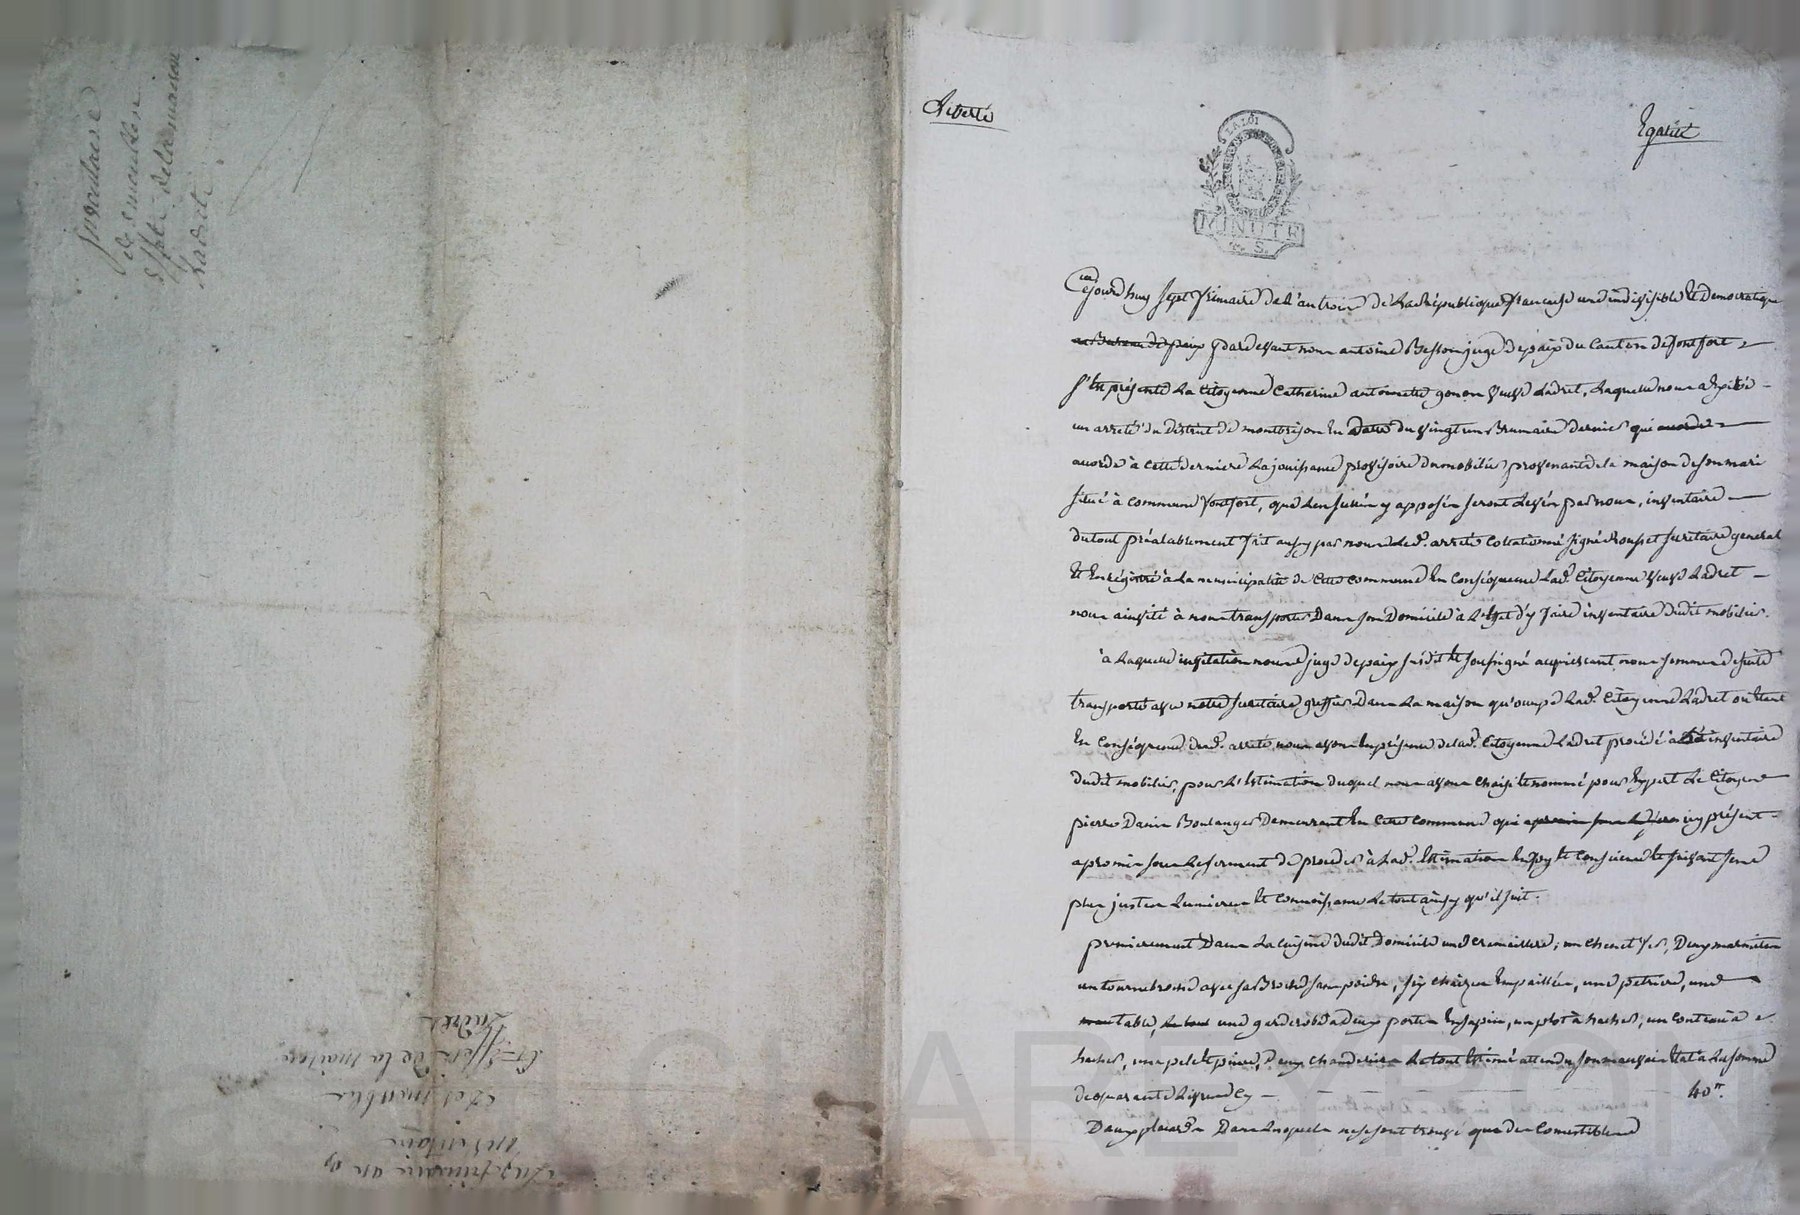 Inventaire
des meubles et
effets de la maison
Ladret
Liberté
Egalité
LA LOI
MINUTE
Cejourdhuy sept frimaire de l'an trois de la république francaise une indivisible et democratique
au Bureau de paix pardevant nous antoine Besson juge de paix du Canton de fontfort
s'est présenté la Citoyenne Catherine antoinette gonon veuve Ladret, laquelle nous a exibé
un arreté du District de montbrison en Date du vingt un Brumaire dernier qui acorde
acorde à cette derniere la jouissance provisoire du mobilier provenant de la maison de son mari
situé à commune fontfort, que les scellés y apposés seront levés par nous, inventaire
du tout préalablement fait aussy par nous led. arreté collationné signé secrétaire general
et enrégistré à la municipalité de cette commune en conséquence lad. Citoyenne veuve Ladret
nous a invité à nous transporter Dans son Domicile à l'effet d'y faire inventaire dudit mobilier.
à laquelle invitation nous juge de paix susdit et soussigné acquiescant nous sommes de suite
transporté avec notre secrétaire greffier Dans la maison qu'occupe lad. Citoyenne Ladret où étant
En conséquence dud. arreté nous avons en présence de lad. Citoyenne Ladret procédé à inventaire
dudit mobilier, pour l'estimation duquel nous avons choisi et nommé pour expert le Citoyen
pierre Danis Boulanger demeurant en cette commune qui icy présent
a promis sous le serment de proceder à lad. estimation en foy et conscience et suivant ses
plus justes lumieres et connoissances le tout ainsy qu'il suit.
premierement Dans la cuisine dudit domicile une cremaillere, un chenet fer, Deux marmites
un tournebroche avec sa Broche sans poids, six chaizes empaillées, une petriere, une
table, une garderobe à deux portes en sapin, un plot à hacher, un couteau à
hacher, une pele et pince, Deux chandeliers le tout estimé attendu son mauvais état à la somme
de quarante livres cy 40 tt.
Deux placards Dans lesquels ne se sont trouvé que des Comestibles
Sept frimaire an 3
Inventaire
des meubles
et effets de la maison
Ladret
CHAREYRON